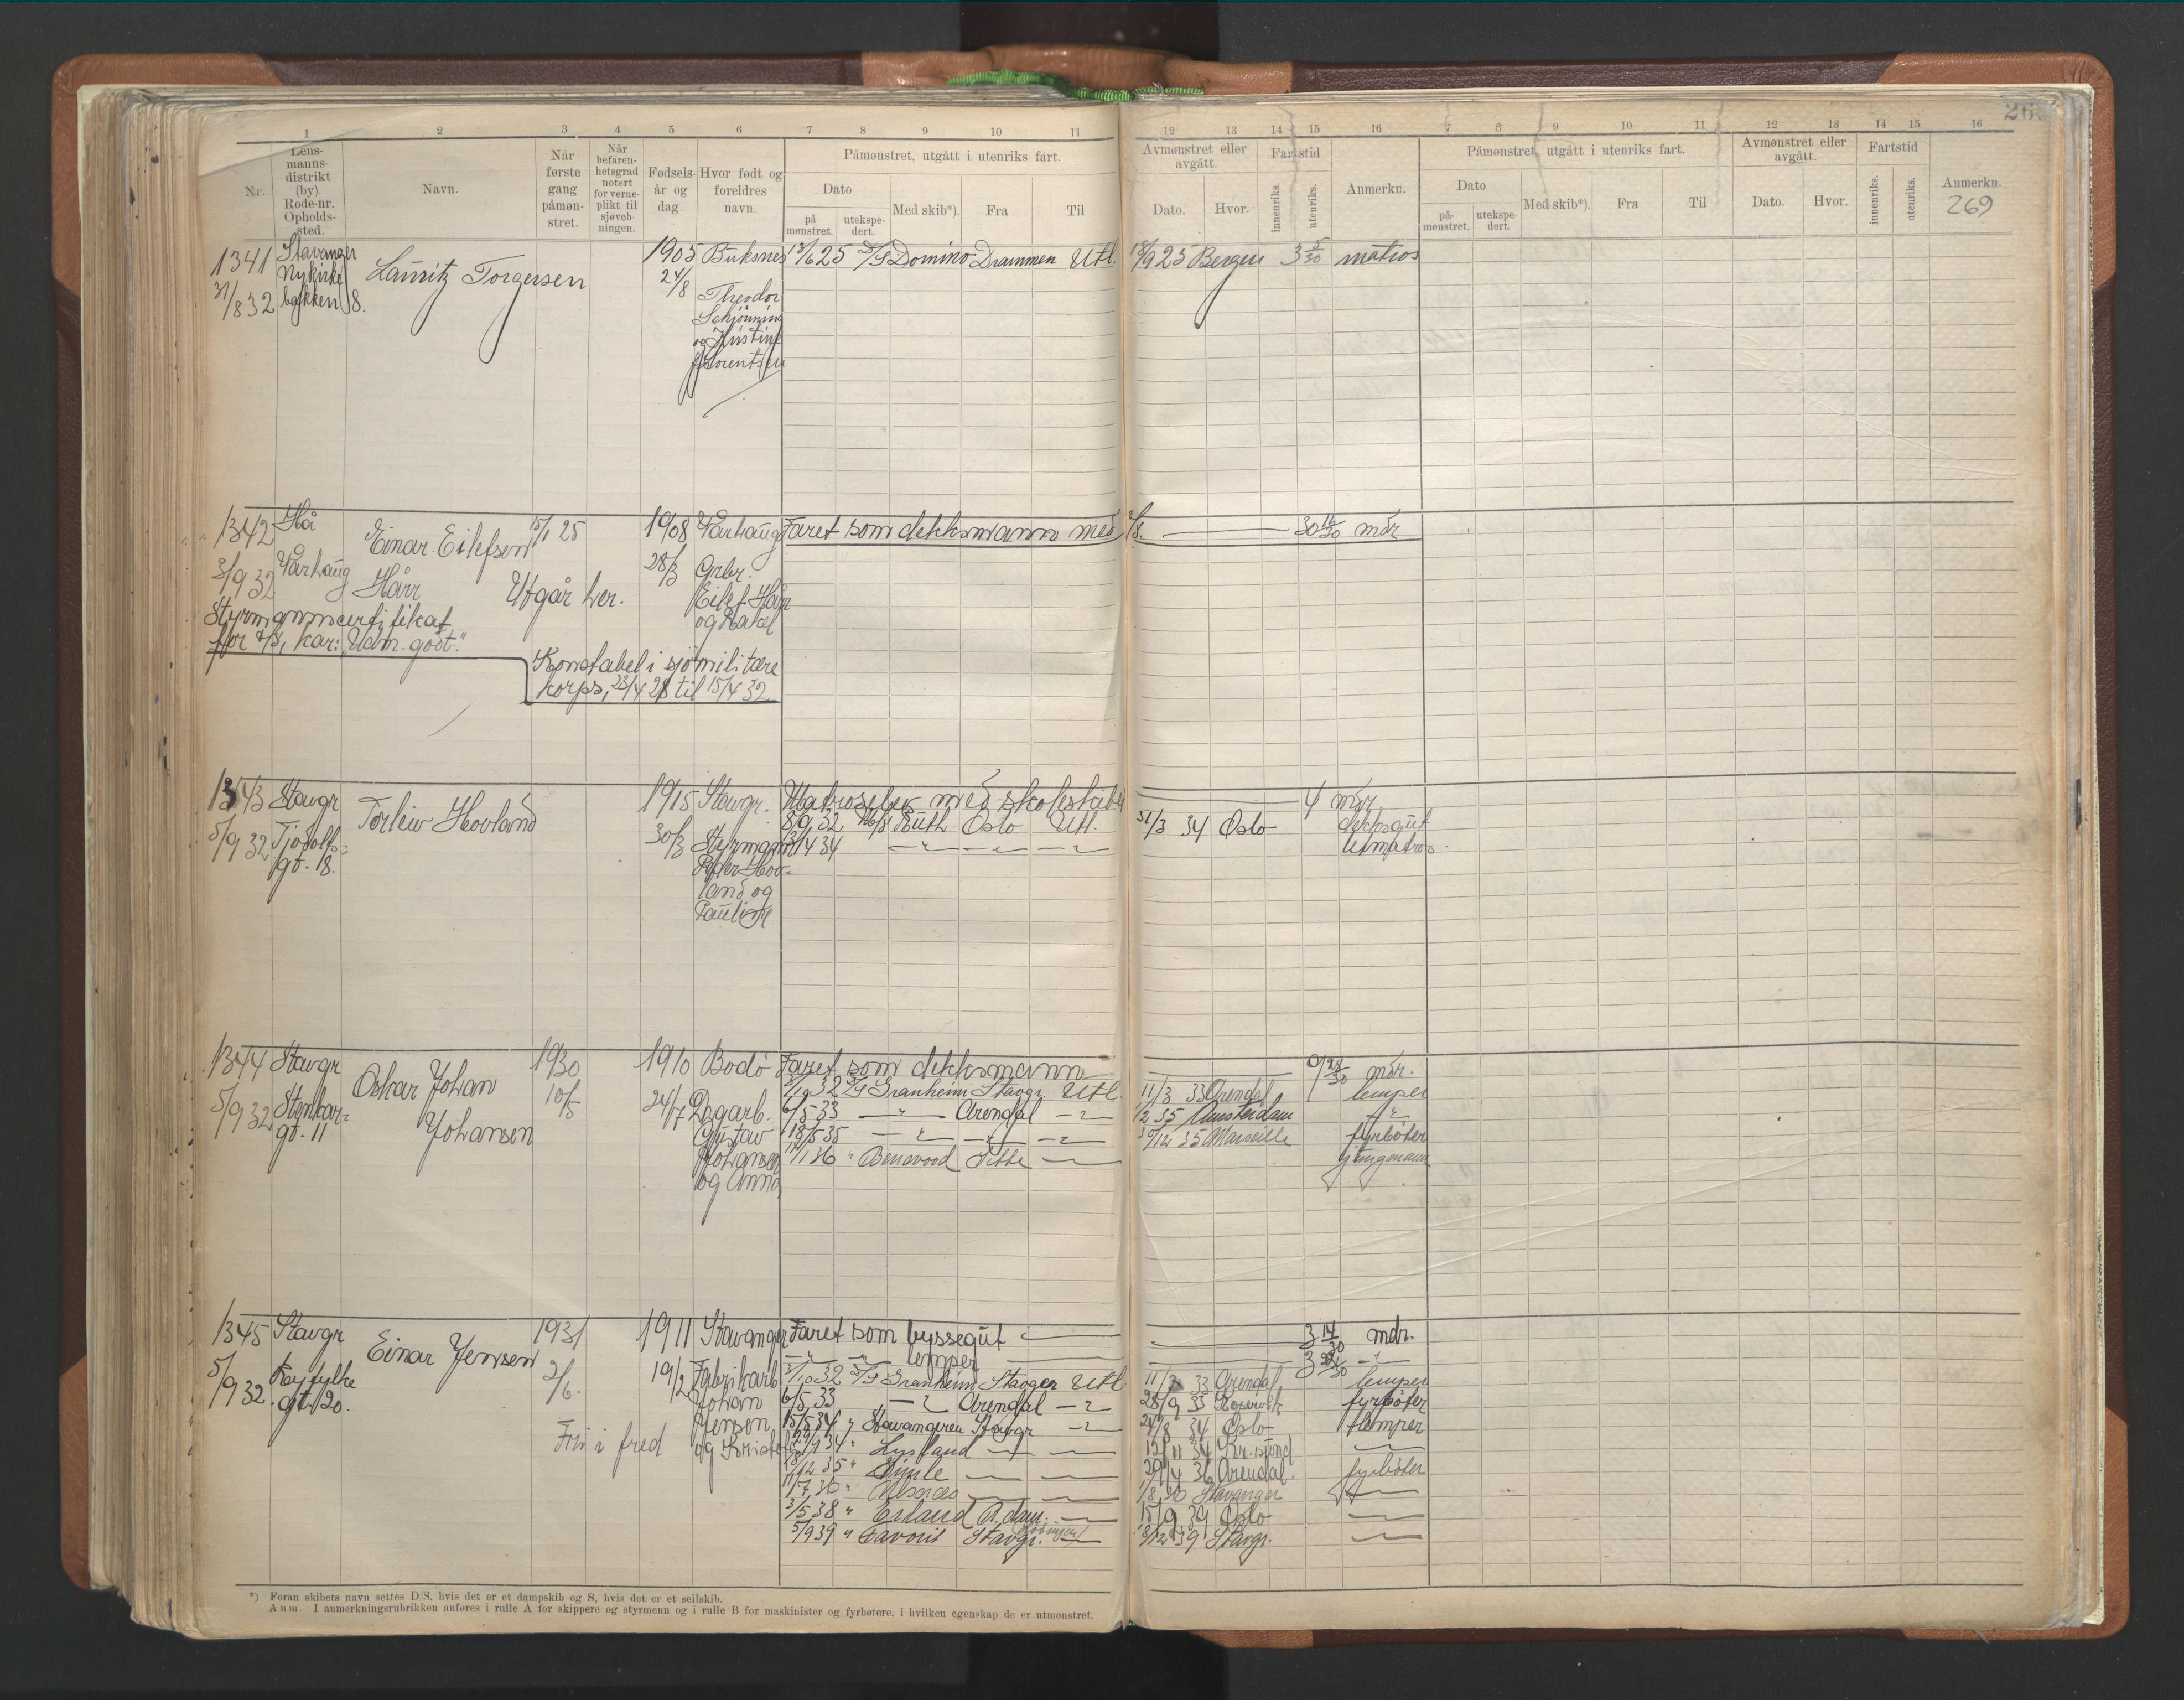 1 2 3 4 5 6 7 8 9 10 11 12 13 14 15 16 7 8 9 10 11 12 13 14 15 16
269
Nr.
Lens-
manns-
distrikt
(by).
Rode-nr.
Opholds-
sted.
Navn.
Når
første
gang
påmøn-
stret.
Når
befaren-
hetsgrad
notert
for verne-
plikt til
sjøveb-
ningen.
Fødsels-
år og
dag
Hvor født og
foreldres
navn.
Påmønstret, utgått i utenriks fart.
Dato
på
mønstret.
utekspe-
dert.
Med skib*).
Fra
Til
Avmønstret eller
avgått.
Dato.
Hvor.
Fartstid
innenriks.
utenriks.
Anmerkn.
Påmønstret, utgått i utenriks fart.
Dato
på-
mønstret.
utekspe-
dert.
Med skib*).
Fra
Til
Avmønstret eller
avgått.
Dato.
Hvor.
Fartstid
innenriks.
utenriks.
Anmerkn.
1341
31/8 32
Stavanger
Nykirke
bakken 8.
Lauritz Torgersen
1905
24/8
Buksnes
Theodor
Schjønning
og Kristine
Lorentsen
13/6 25 D/S Domino Drammen Utl. 18/9 25 Bergen 3 5/30 matros
1342
3/9 32
Hå
Varhaug
Einar Eilefsen
Hårr
15/1 25
Utgår her.
1908
28/3
Varhaug
Grbr.
Eilef Hårr
og Rakel
Faret som dekksmann med 4/8. 30 16/30 mdr
Styrmannscertifikat
for D/S, kar: "Udm. godt".
Konstabel i sjømilitære
korps, 23/4 28 til 15/4 32
1343
5/9 32
Stavgr
Tjodolfs-
gt. 18.
Torleiv Hovland
1915
30/3
Stavgr.
Styrmann
Peder Hov-
land og
Pauline
Matroselev med skoleskibet 4 mdr
8/9 32 M/S Ruth Oslo Utl. 31/3 34 Oslo dekksgut
4 34 — " — — " — — " — letmatros.
1344
5/9 32
Stavgr
Stenkar-
gt. 11
Oskar Johan
Johansen
1930
10/5
1910
24/7
Bodø
Dagarb.
Gustav
Johansen
og Anna
Faret som dekksmann 9 28/30 mdr.
3/10 32 D/S Granheim Stavgr Utl. 11/3 33 Arendal lemper
6/5 33 — " — Arendal — " — 1/2 35 Amsterdam — " —
18/5 35 — " — — " — — " — 30/12 35 Marseille fyrbøter
17/1 36 " Benwood Sette — jungmann
1345
5/9 32.
Stavgr
Ryfylke
gt. 20.
Einar Jensen
1931
2/6.
Fri i fred
1911
19/2
Stavanger
Fabrikarb
Johan
Jensen
Faret som byssegut — 3 14/30 mdr.
— " — — " — lemper — 3 — " —
3/10 32 D/S Granheim Stavger Utl 11/3 33 Arendal lemper
6/5 33 — " — Arendal — " — 28/9 33 Kopervik fyrbøter
15/5 34 " Stavangeren Stavgr — " — 24/8 34 Oslo lemper
29/9 34 " Lysland — " — — 13/11 34 Kr.sund —
12 35 " Gimle — — 29/4 36 Arendal. fyrbøter
11/7 36 " — — 1/8 36 Stavanger —
3/5 38 " Erland A.dam. — 15/9 39 Oslo —
5/9 39 " Favorit Stavgr. — 18/12 39 Stavgr. —
*) Foran skibets navn settes D/S, hvis det er et dampskib og S, hvis det er et seilskib.
Anm. I anmerkningsrubrikken anføres i rulle A for skippere og styrmenn og i rulle B for maskinister og fyrbøtere, i hvilken egenskap de er utmønstret.